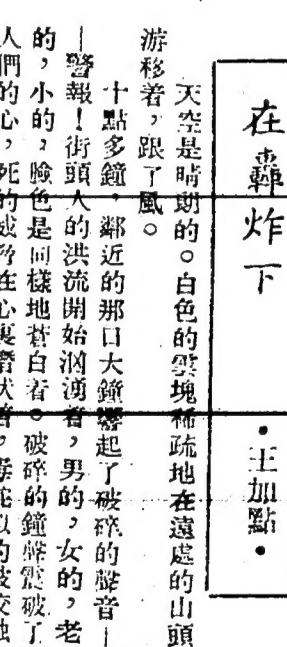 在轟炸下
•王加點•
天空是晴朗的。白色的雲塊稀疏地在遠處的山頭
游移着，跟了風。
十點多鐘，鄰近的那口大鐘響起了破碎的聲音—
—警報！街頭人的洪流開始洶湧着，男的，女的，老
的，小的，臉色是同樣地蒼白着。破碎的鐘聲震破了
人們的心，死的威脅在心裏潛伏着，毒蛇似的被咬蝕